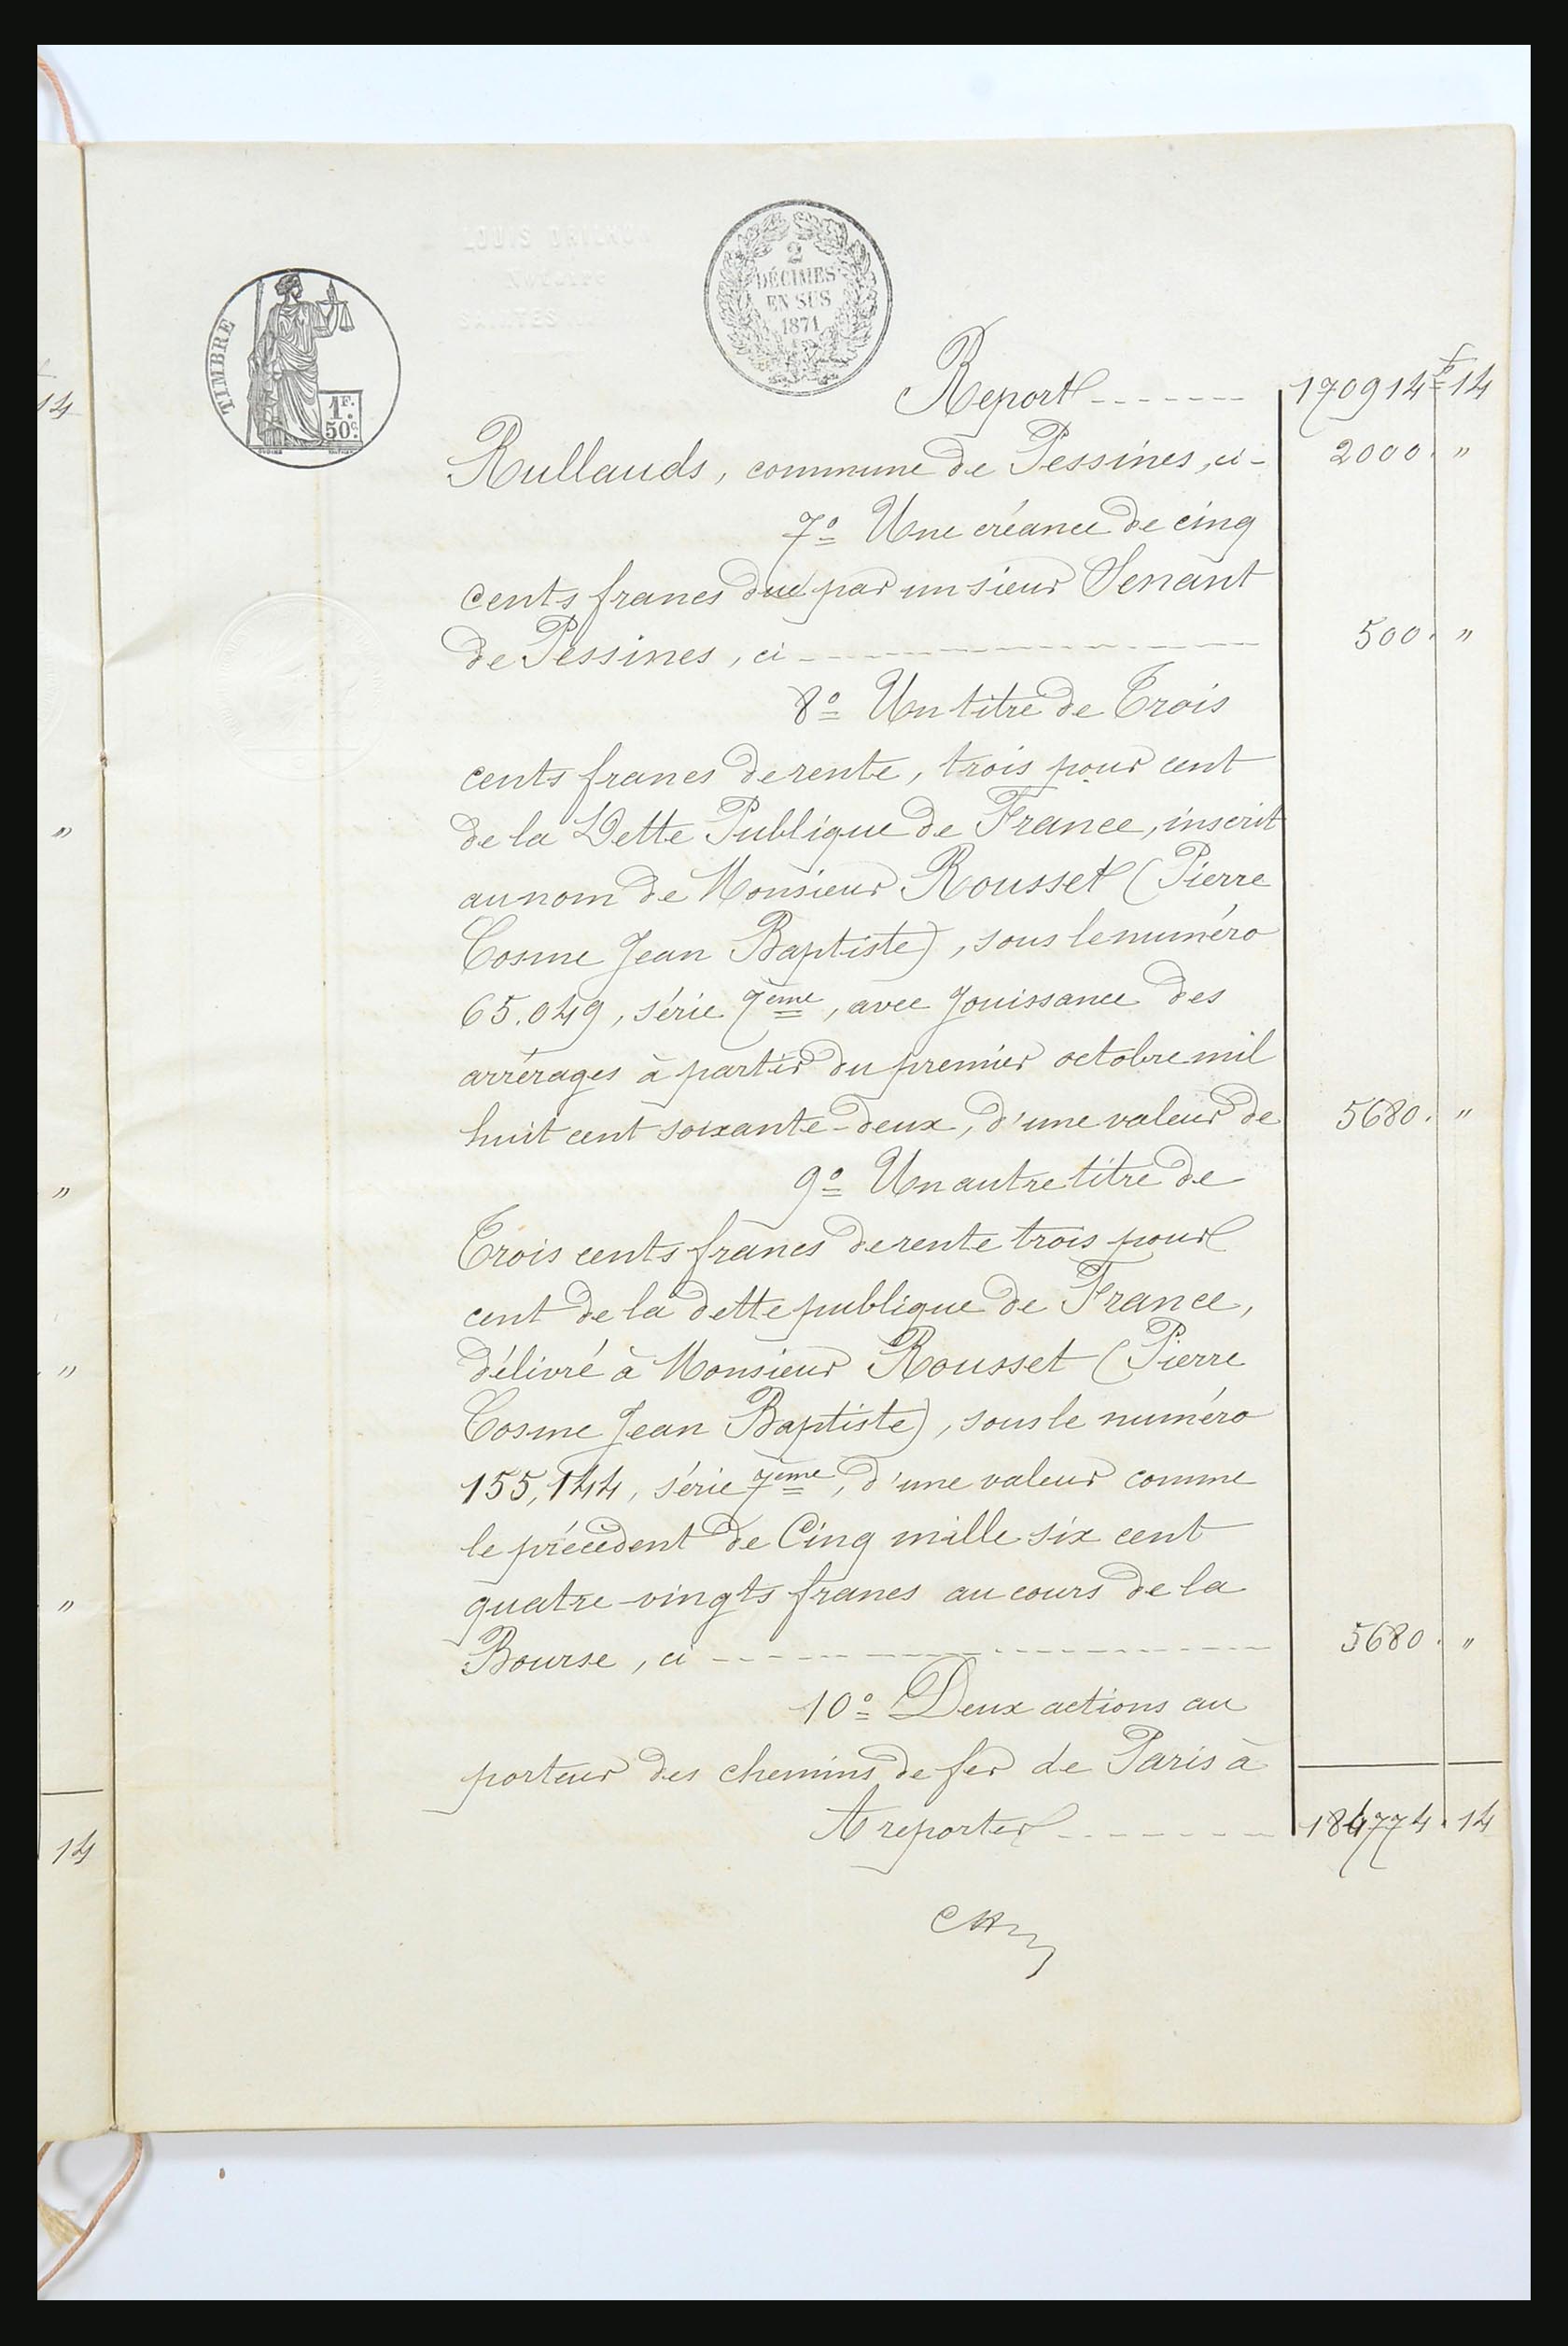 14
"
"
"
"
14
LOUIS DRILHON
Notaire
SAINTES
2
DÉCIMES
EN SUS
1871
TIMBRE
1F.
50c.
Report ------- 170914 f 14
Rullauds, commune de Pessines, ci- 2000. "
7º Une créance de cinq
cents francs due par un sieur Senant
de Pessines, ci ------- 500. "
8º Un titre de Trois
cents francs de rente, trois pour cent
de la Dette Publique de France, inscrit
au nom de Monsieur Rousset (Pierre
Cosme Jean Baptiste), sous le numéro
65.049, série 7ème, avec Jouissance des
arrérages à partir du premier octobre mil
huit cent soixante-deux, d'une valeur de 5680. "
9º Un autre titre de
Trois cents francs de rente trois pour
cent de la dette publique de France,
délivré à Monsieur Rousset (Pierre
Cosme Jean Baptiste), sous le numéro
155,144, série 7ème, d'une valeur comme
le précédent de Cinq mille six cent
quatre-vingts francs au cours de la
Bourse, ci ------- 5680. "
10º Deux actions au
porteur des chemins de fer de Paris à
A reporter ------- 184774. 14